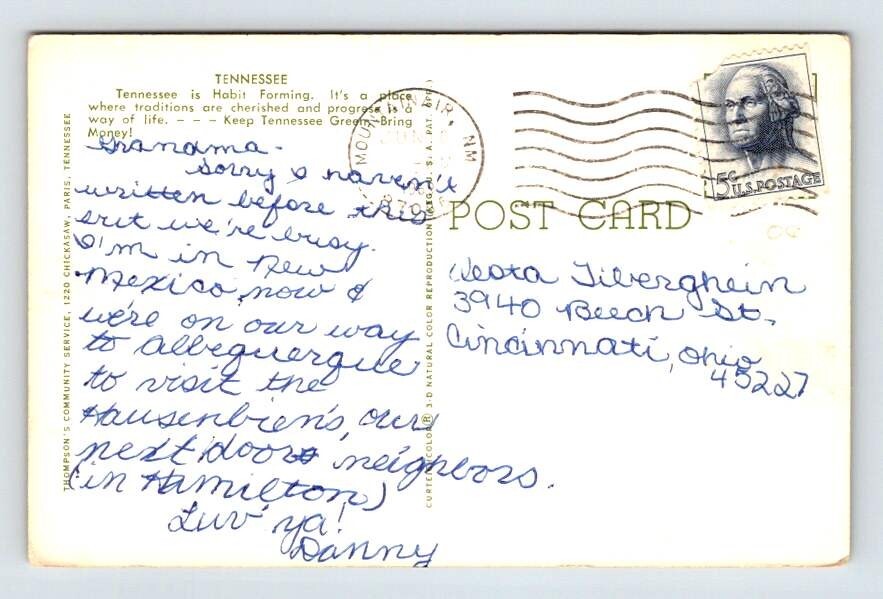 TENNESSEE
Tennessee is Habit Forming. It's a place
where traditions are cherished and progress is a
way of life. - - - Keep Tennessee Green, Bring
Money!
Grandma-
Sorry I haven't
written before this
but we're busy.
I'm in New
Mexico now &
we're on our way
to Albequerque
to visit the
Hausenbien's, our
next door neighbors.
(in Hamilton)
Luv ya!
Danny
THOMPSON'S COMMUNITY SERVICE, 1220 CHICKASAW, PARIS, TENNESSEE
CURTEICHCOLOR® 3-D NATURAL COLOR REPRODUCTION (REG. U.S.A. PAT. OFF.)
MOUNTAINAIR, NM
JUN
5¢ U.S. POSTAGE
POST CARD
Leota Tiberghein
3940 Beech St.
Cincinnati, Ohio
45227